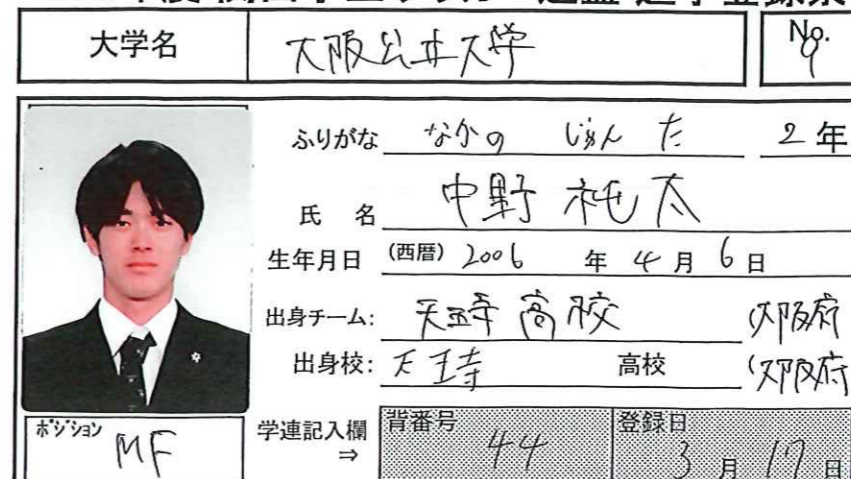 大学名 大阪公立大学 No. 9
ふりがな なかの じゅん た 2年
氏 名 中野 純太
生年月日 (西暦) 2006 年 4月 6日
出身チーム: 天王寺高校 (大阪府
出身校: 天王寺 高校 (大阪府
ポジション MF 学連記入欄 ⇒ 背番号 44 登録日 3月17日